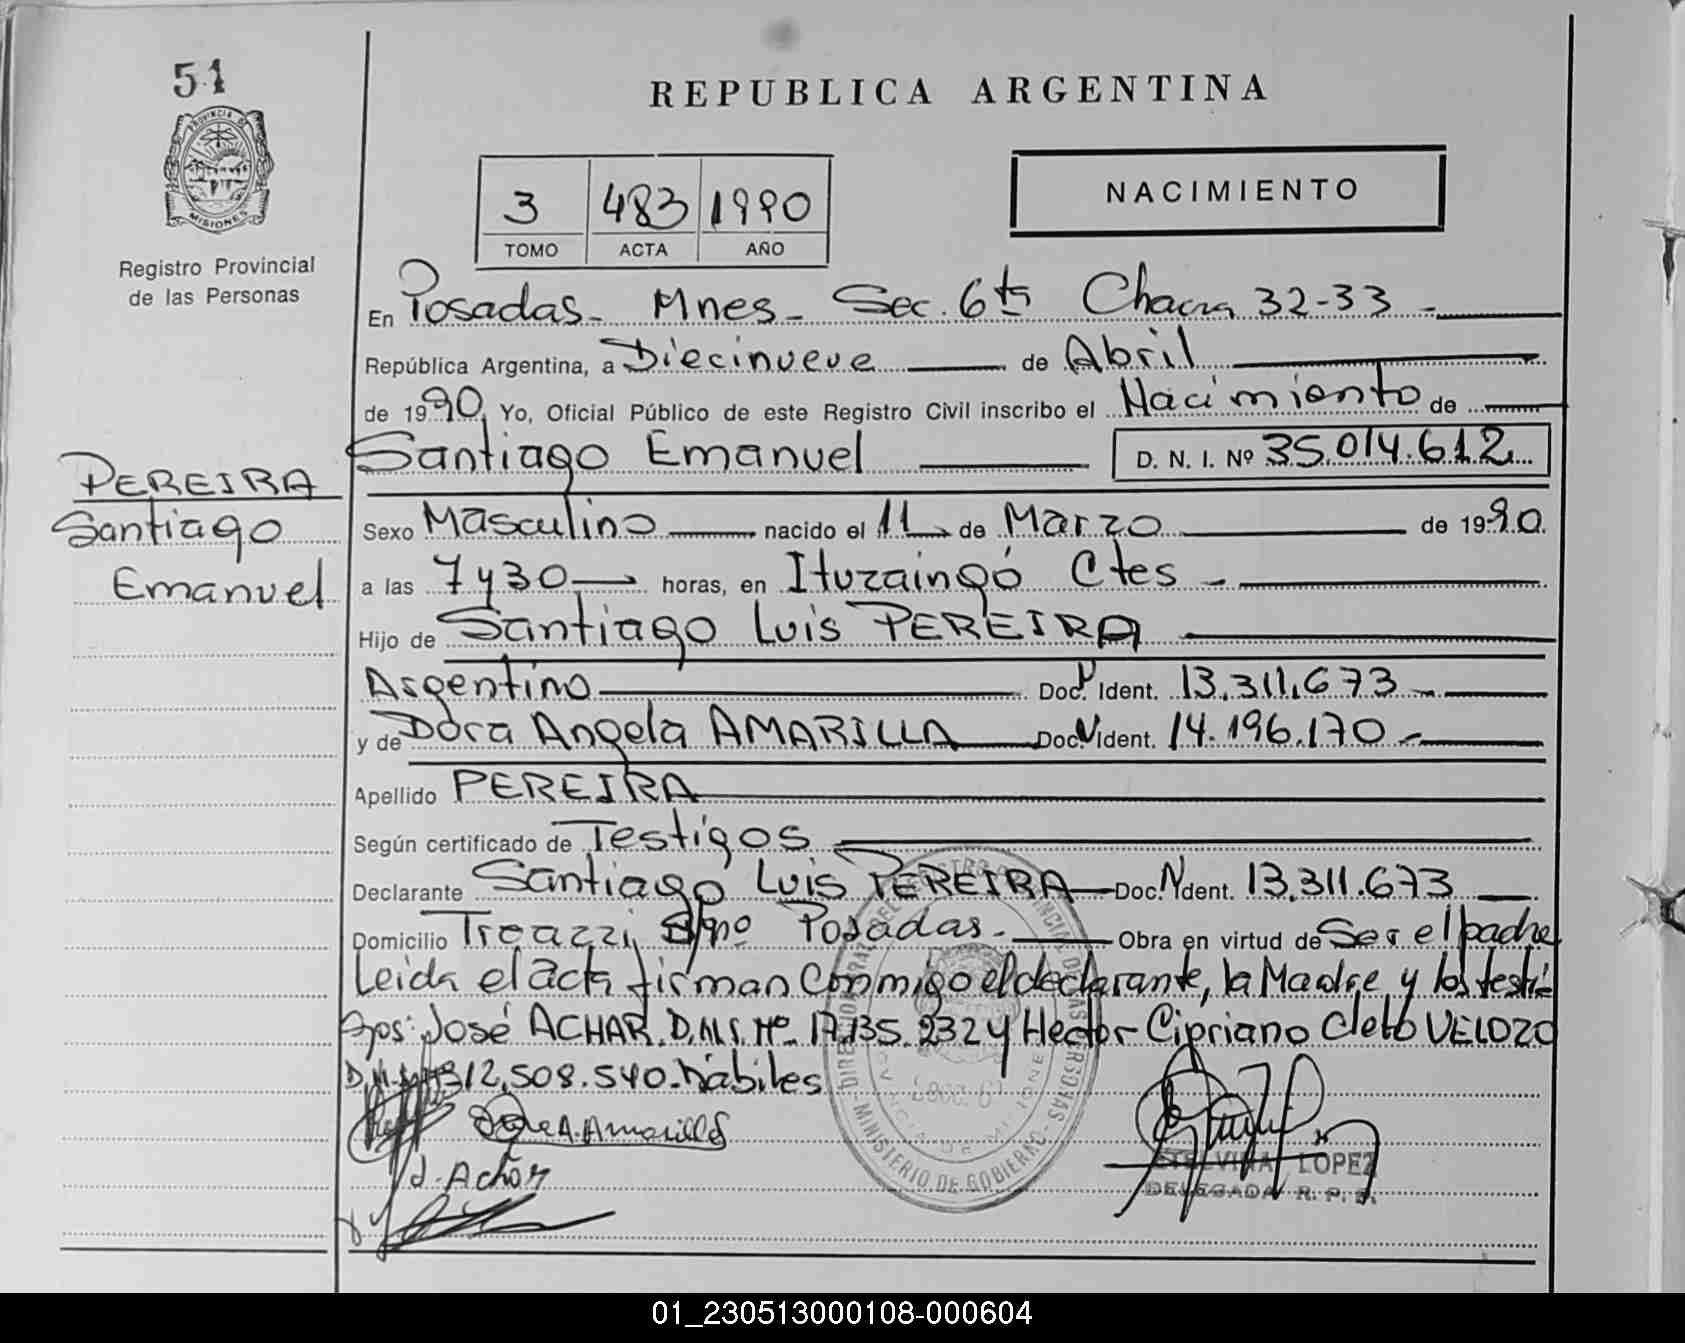 51
PROVINCIA DE
MISIONES
Registro Provincial
de las Personas
REPUBLICA ARGENTINA
3 483 1990
TOMO ACTA AÑO
NACIMIENTO
En Posadas - Mnes - Sec. 6ta Chacra 32-33 -
República Argentina, a Diecinueve de Abril
de 1990, Yo, Oficial Público de este Registro Civil inscribo el Nacimiento de
Santiago Emanuel D. N. I. Nº 35.014.612
PEREIRA
Santiago
Emanuel
Sexo Masculino nacido el 11 de Marzo de 1990.
a las 7 y 30 horas, en Ituzaingó Ctes -
Hijo de Santiago Luis PEREIRA
Argentino Doc. N Ident. 13.311.673 -
y de Dora Angela AMARILLA Doc. N Ident. 14.196.170 -
Apellido PEREIRA
Según certificado de Testigos
Declarante Santiago Luis PEREIRA Doc. N Ident. 13.311.673
Domicilio S/nº Posadas - Obra en virtud de Ser el padre
Leida el acta firman conmigo el declarante, la Madre y los testi
gos: José ACHAR. D.N.I. Nº 17.135.232 y Hector Cipriano Cleto VELOZO
D.N.I. Nº 12.508.540 - hábiles
MINISTERIO DE GOBIERNO
A. Amarilla
J. Achar
ETELVINA LOPEZ
DELEGADA R. P. P.
01_230513000108-000604